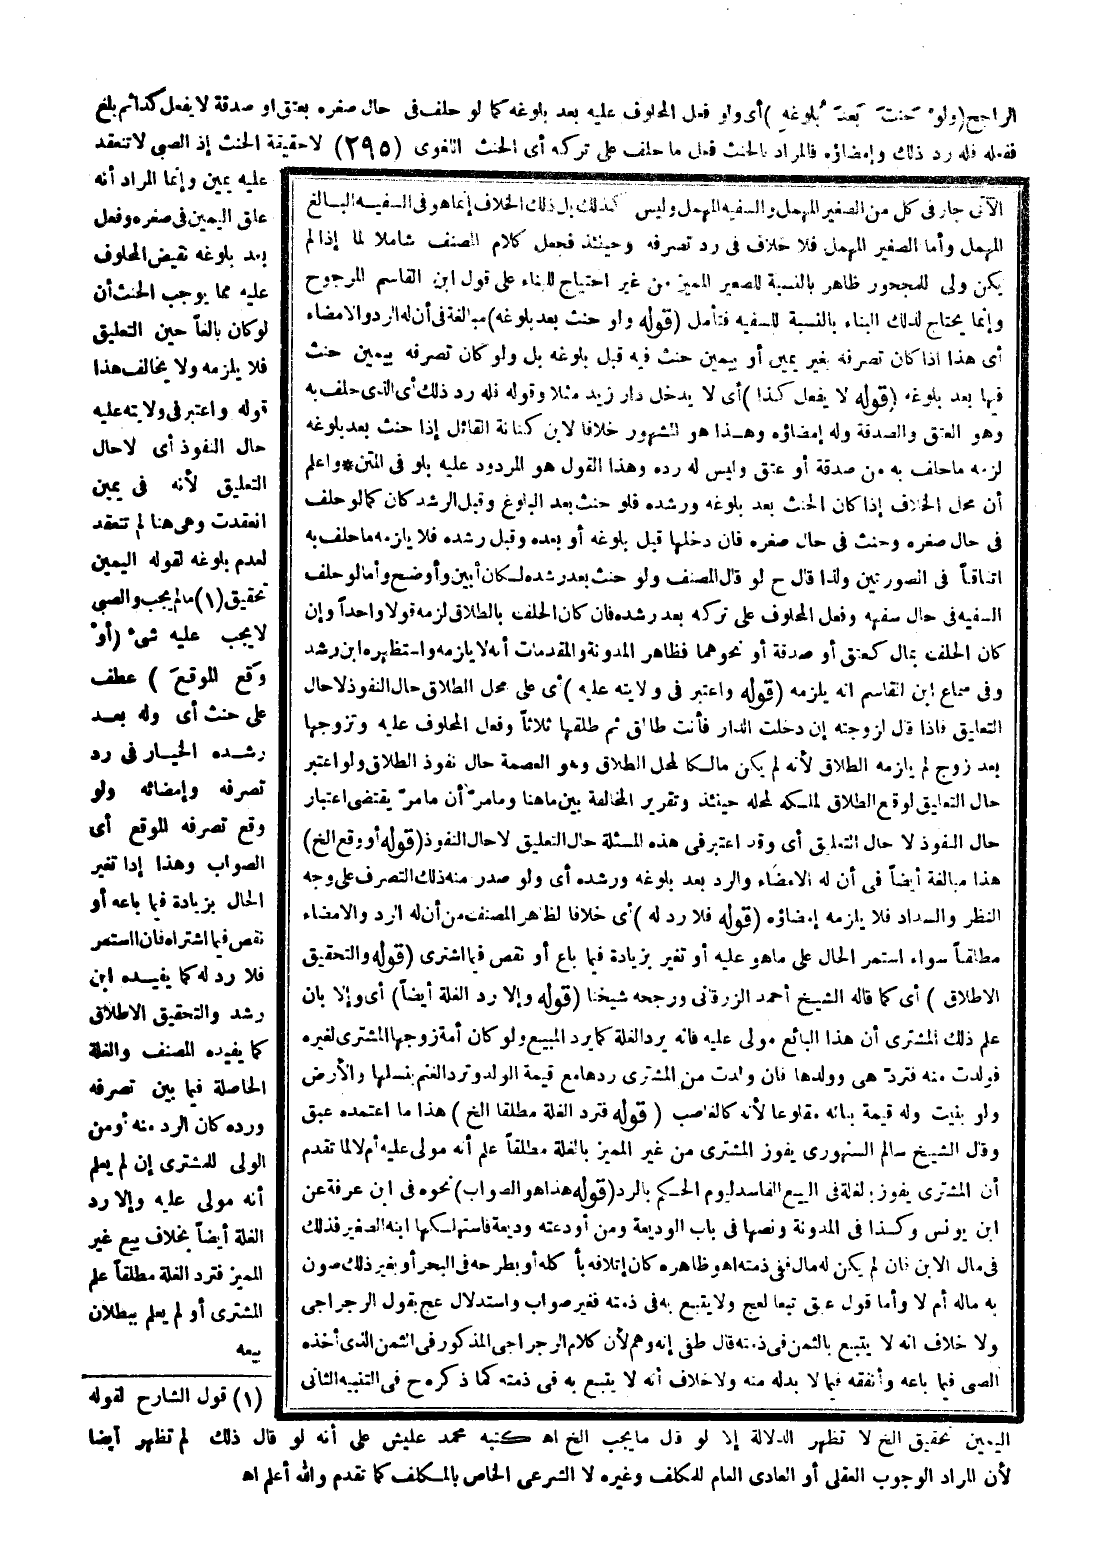 الراجح (ولو حنث بعد بلوغه) أى ولو فعل المحلوف عليه بعد بلوغه كما لو حلف فى حال صغره بعتق او صدقة لا يفعل كذا ثم بلغ
ففعله فله رد ذلك وإمضاؤه فالمراد بالحنث فعل ما حلف على تركه أى الحنث اللغوى (٢٩٥) لا حقيقة الحنث إذ الصبى لا تنعقد
عليه يمين وإنما المراد أنه
علق اليمين فى صغره وفعل
بعد بلوغه نقيض المحلوف
عليه مما يوجب الحنث أن
لو كان بالغاً حين التعليق
فلا يلزمه ولا يخالف هذا
قوله واعتبر فى ولايته عليه
حال النفوذ أى لا حال
التعليق لأنه فى يمين
انعقدت وهى هنا لم تنعقد
لعدم بلوغه لقوله اليمين
تحقيق (١) مالم يجب والصبى
لا يجب عليه شىء (أو
وقع الموقع) عطف
على حنث أى وله بعد
رشده الخيار فى رد
تصرفه وإمضائه ولو
وقع تصرفه الموقع أى
الصواب وهذا إذا تغير
الحال بزيادة فيما باعه أو
نقص فيما اشتراه فان استمر
فلا رد له كما يفيده ابن
رشد والتحقيق الاطلاق
كما يفيده المصنف والغلة
الحاصلة فيما بين تصرفه
ورده كان الرد منه أو من
الولى للمشترى إن لم يعلم
أنه مولى عليه وإلا رد
الغلة أيضاً بخلاف بيع غير
المميز فترد الغلة مطلقاً علم
المشترى أو لم يعلم ببطلان
بيعه
الآتى جار فى كل من الصغير المهمل والسفيه المهمل وليس كذلك بل ذلك الخلاف إنما هو فى السفيه البالغ
المهمل وأما الصغير المهمل فلا خلاف فى رد تصرفه وحينئذ فجعل كلام المصنف شاملا لما إذا لم
يكن ولى للمحجور ظاهر بالنسبة للصغير المميز من غير احتياج للبناء على قول ابن القاسم المرجوح
وإنما يحتاج لذلك البناء بالنسبة للسفيه فتأمل (قوله ولو حنث بعد بلوغه) مبالغة فى أن له الرد والامضاء
أى هذا اذا كان تصرفه بغير يمين أو بيمين حنث فيه قبل بلوغه بل ولو كان تصرفه بيمين حنث
فيها بعد بلوغه (قوله لا يفعل كذا) أى لا يدخل دار زيد مثلا وقوله فله رد ذلك أى الذى حلف به
وهو العتق والصدقة وله إمضاؤه وهذا هو المشهور خلافا لابن كنانة القائل إذا حنث بعد بلوغه
لزمه ما حلف به من صدقة أو عتق وليس له رده وهذا القول هو المردود عليه بلو فى المتن * واعلم
أن محل الخلاف إذا كان الحنث بعد بلوغه ورشده فلو حنث بعد البلوغ وقبل الرشد كان كما لو حلف
فى حال صغره وحنث فى حال صغره فان دخلها قبل بلوغه أو بعده وقبل رشده فلا يلزمه ما حلف به
اتفاقاً فى الصورتين ولذا قال ح لو قال المصنف ولو حنث بعد رشده لكان أبين وأوضح وأما لو حلف
السفيه فى حال سفهه وفعل المحلوف على تركه بعد رشده فان كان الحلف بالطلاق لزمه قولا واحداً وإن
كان الحلف بمال كعتق أو صدقة أو نحوهما فظاهر المدونة والمقدمات أنه لا يلزمه واستظهره ابن رشد
وفى سماع ابن القاسم انه يلزمه (قوله واعتبر فى ولايته عليه) أى على محل الطلاق حال النفوذ لا حال
التعليق فاذا قال لزوجته إن دخلت الدار فأنت طالق ثم طلقها ثلاثاً وفعل المحلوف عليه وتزوجها
بعد زوج لم يلزمه الطلاق لأنه لم يكن مالكا لمحل الطلاق وهو العصمة حال نفوذ الطلاق ولو اعتبر
حال التعليق لوقع الطلاق لملكه لمحله حينئذ وتقرير المخالفة بين ما هنا وما مر أن ما مر يقتضى اعتبار
حال النفوذ لا حال التعليق أى وقد اعتبر فى هذه المسئلة حال التعليق لا حال النفوذ (قوله أو وقع الخ)
هذا مبالغة أيضاً فى أن له الامضاء والرد بعد بلوغه ورشده أى ولو صدر منه ذلك التصرف على وجه
النظر والسداد فلا يلزمه إمضاؤه (قوله فلا رد له) أى خلافا لظاهر المصنف من أن له الرد والامضاء
مطلقاً سواء استمر الحال على ما هو عليه أو تغير بزيادة فيما باع أو نقص فيما اشترى (قوله والتحقيق
الاطلاق) أى كما قاله الشيخ أحمد الزرقانى ورجحه شيخنا (قوله وإلا رد الغلة أيضاً) أى وإلا بان
علم ذلك المشترى أن هذا البائع مولى عليه فانه يرد الغلة كما يرد المبيع ولو كان أمة زوجها المشترى لغيره
فولدت منه فترد هى وولدها فان ولدت من المشترى ردها مع قيمة الولد وترد الغنم بنسلها والأرض
ولو بنيت وله قيمة بنائه مقلوعا لأنه كالغاصب (قوله فترد الغلة مطلقا الخ) هذا ما اعتمده عبق
وقال الشيخ سالم السنهورى يفوز المشترى من غير المميز بالغلة مطلقاً علم أنه مولى عليه أم لا لما تقدم
أن المشترى يفوز بالغلة فى البيع الفاسد ليوم الحكم بالرد (قوله هذا هو الصواب) نحوه فى ابن عرفة عن
ابن يونس وكذا فى المدونة ونصها فى باب الوديعة ومن أودعته وديعة فاستهلكها ابنه الصغير فذلك
فى مال الابن فان لم يكن له مال ففى ذمته اهـ وظاهره كان إتلافه بأكله أو بطرحه فى البحر أو بغير ذلك صون
به ماله أم لا وأما قول عبق تبعا لعج ولا يتبع به فى ذمته فغير صواب واستدلال عج بقول الرجراجى
ولا خلاف انه لا يتبع بالثمن فى ذمته قال طفى إنه وهم لأن كلام الرجراجى المذكور فى الثمن الذى أخذه
الصبى فيما باعه وأنفقه فيما لا بد له منه ولا خلاف أنه لا يتبع به فى ذمته كما ذكره ح فى التنبيه الثانى
(١) قول الشارح لقوله
اليمين تحقيق الخ لا تظهر الدلالة إلا لو قال ما يجب الخ اهـ كتبه محمد عليش على أنه لو قال ذلك لم تظهر أيضا
لأن المراد الوجوب العقلى أو العادى العام للمكلف وغيره لا الشرعى الخاص بالمكلف كما تقدم والله أعلم اهـ